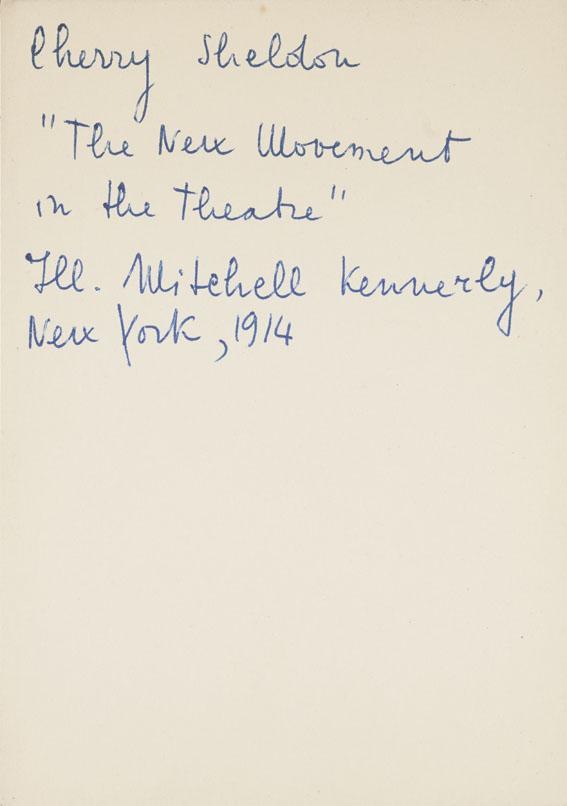 Cherry Sheldon
"The New Movement
in the Theatre"
Ill. Mitchell Kennerly,
New York, 1914